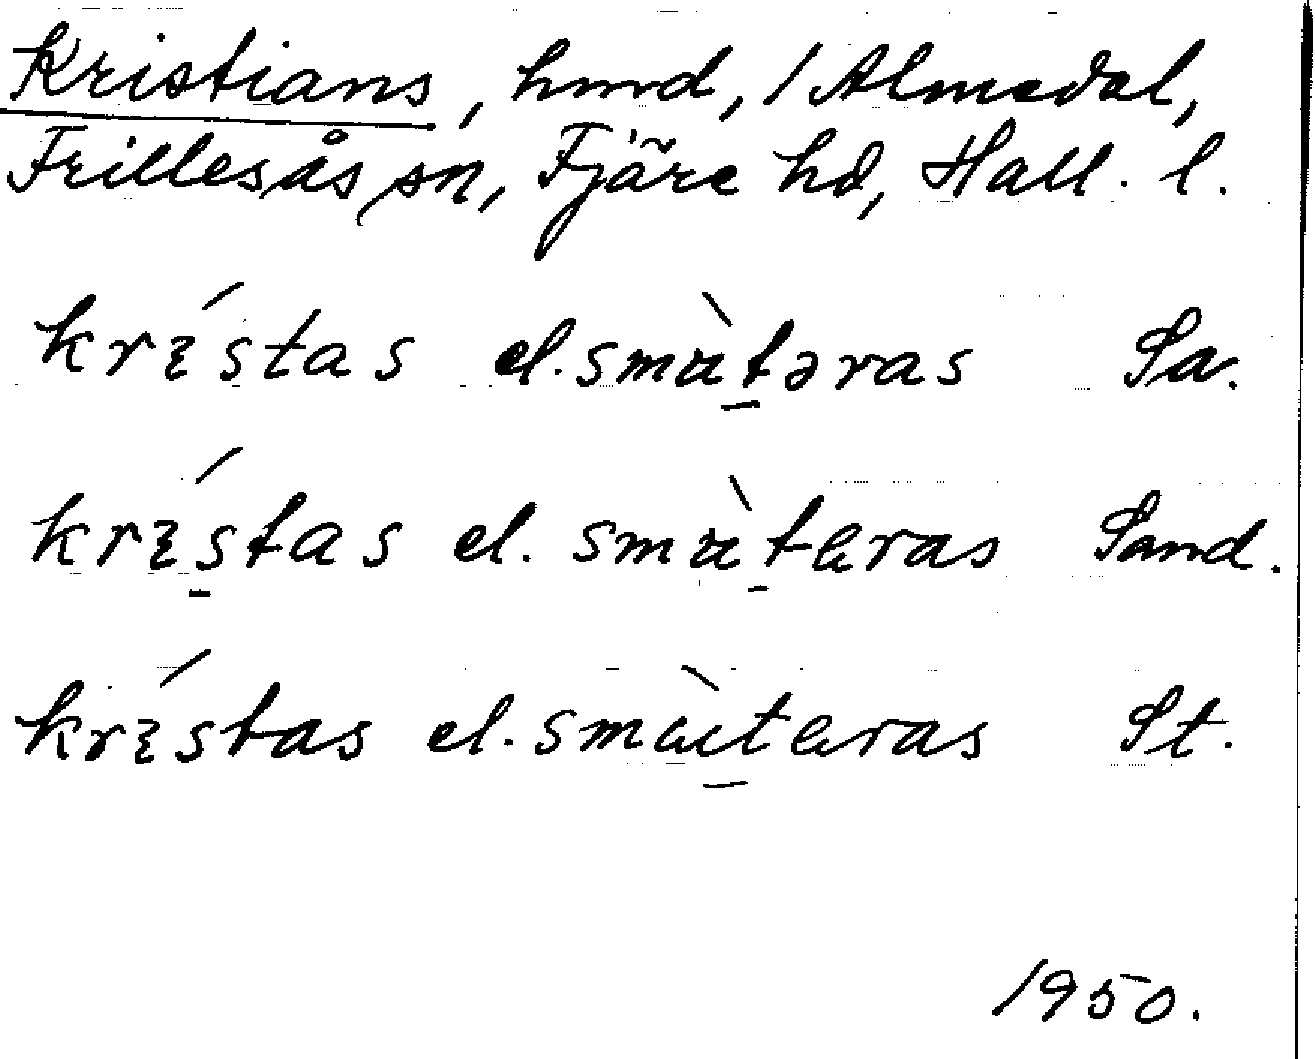 Kristians, hmd, / Almedal,
Frillesås sn, Fjäre hd, Hall. l.
krɪ́stas el. smɑ̀təras Sa.
krɪ́s̠tas el. smɑ̀t̠eras Sand.
krɪ́stas el. smɑ̀it̠eras St.
1950.